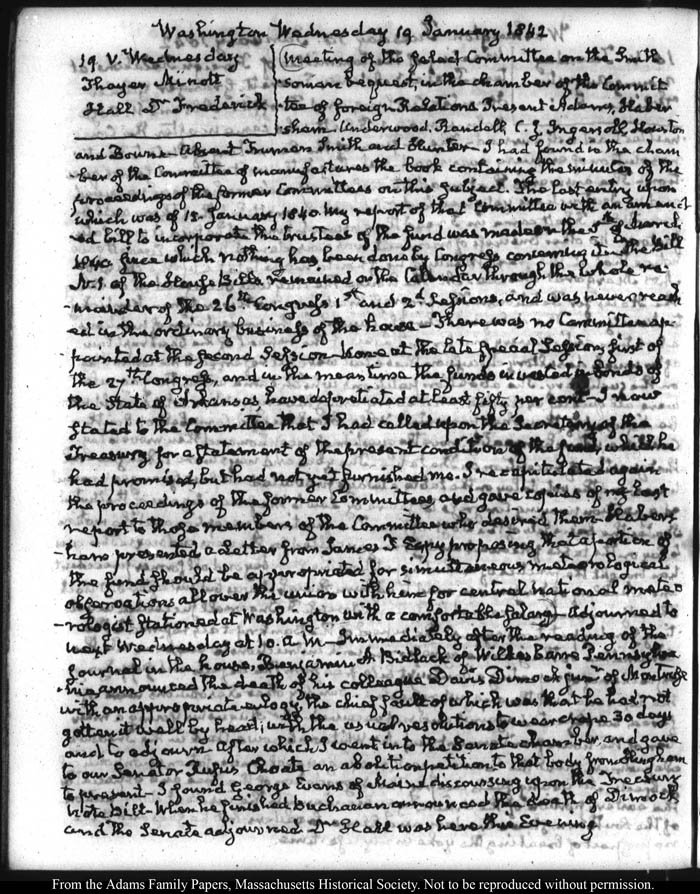 Washington Wednesday 19 January 1842
19. V. Wednesday
Thayer Minott
Hall Dr Frederick
Meeting of the Select Committee on the Smith
sonian bequest, in the chamber of the Commit
tee of foreign Relations. Present Adams, Haber
sham, Underwood, Randall, C. J. Ingersoll, Houston
and Bowne. Absent Truman Smith and Hunter. I had found in the cham
ber of the Committee of manufactures the book containing the minutes of the
proceedings of the former Committees on this subject. The last entry upon
which was of 15. January 1840. My report of that Committee with an amend
ed bill to incorporate the trustees of the fund was made on the 5th of March
1840. since which nothing has been done by Congress concerning it. The Bill
N. 1. of the House Bills, remained on the Calendar through the whole re
mainder of the 26th Congress 1st and 2d Sessions, and was never reach
ed in the ordinary business of the house — There was no Committee ap
pointed at the second Session — None at the late special Session, first of
the 27th Congress, and in the mean time the funds invested in bonds of
the State of Arkansas, have depretiated at least fifty per cent — I now
stated to the Committee that I had called upon the Secretary of the
Treasury for a statement of the present condition of the fund, which he
had promised, but had not yet furnished me. I recapitulated again
the proceedings of the former Committees, and gave copies of my last
report to those members of the Committee who desired them — Habers
ham presented a Letter from James P. Espy proposing that a portion of
the fund should be appropriated for simultaneous meteorological
observations all over the union with him for central national meteo
rologist stationed at Washington with a comfortable salary — Adjourned to
next Wednesday at 10. A.M — Immediately after the reading of the
Journal in the house, Benjamin A. Bidlack of Wilkes barre Pennsylva
nia announced the death of his colleague Davis Dimock junr of Montrose
with an appropriate eulogy, the chief fault of which was that he had not
gotten it well by heart; with the usual resolutions to wear crape 30 days
and to adjourn. After which I went into the Senate chamber, and gave
to our Senator Rufus Choate an abolition petition to that body from Hingham
to present — I found George Evans of Maine discoursing upon the Treasury
Note Bill — When he finished Buchanan announced the death of Dimock
and the Senate adjourned. Dr Hall was here this Evening
From the Adams Family Papers, Massachusetts Historical Society. Not to be reproduced without permission.